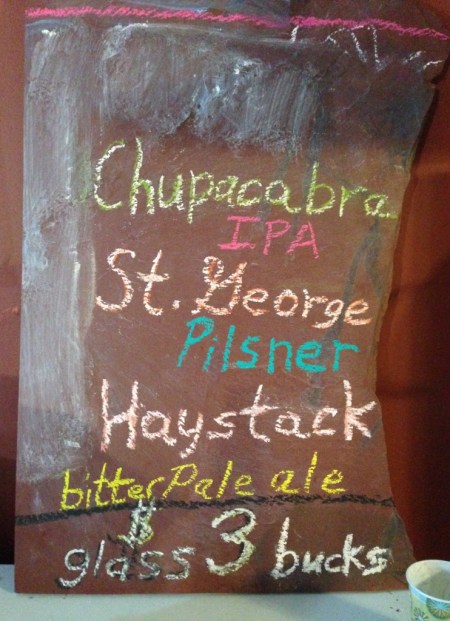 Chupacabra
IPA
St. George
Pilsner
Haystack
bitter Pale ale
$
glass 3 bucks